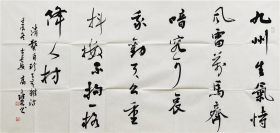 九州生氣恃
風雷萬馬齊
喑究可哀
我勸天公重
抖擻不拘一格
降人材
清龔自珍己亥雜詩